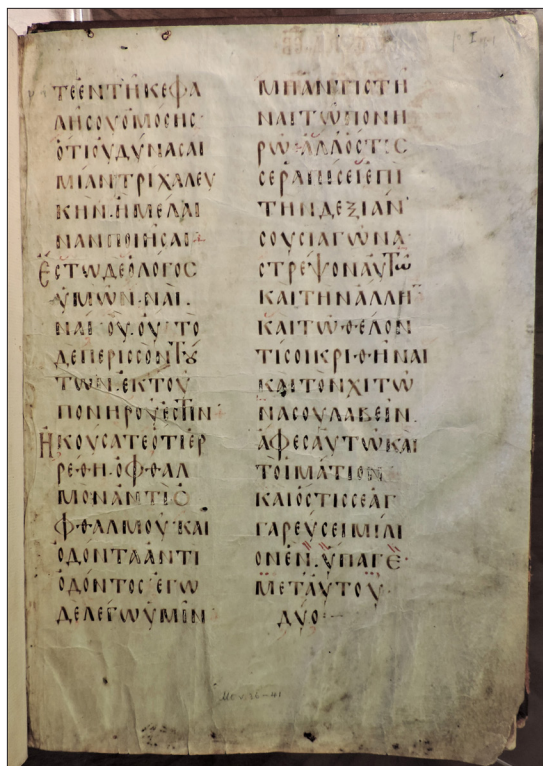 ΤΕΕΝΤΗΚΕΦΑ
ΛΗΣΟΥΟΜΟΣΗΣ
ΟΤΙΟΥΔΥΝΑΣΑΙ
ΜΙΑΝΤΡΙΧΑΛΕΥ
ΚΗΝ.ΗΜΕΛΑΙ
ΝΑΝΠΟΙΗΣΑΙ
ΕΣΤΩΔΕΟΛΟΓΟΣ
ΥΜΩΝ·ΝΑΙ.
ΝΑΙ·ΟΥ.ΟΥ·ΤΟ
ΔΕΠΕΡΙΣΣΟΝΤΟΥ
ΤΩΝ.ΕΚΤΟΥ
ΠΟΝΗΡΟΥΕΣΤΙΝ
ΗΚΟΥΣΑΤΕΟΤΙΕΡ
ΡΕΘΗ·ΟΦΘΑΛ
ΜΟΝΑΝΤΙΟ
ΦΘΑΛΜΟΥ·ΚΑΙ
ΟΔΟΝΤΑΑΝΤΙ
ΟΔΟΝΤΟΣ·ΕΓΩ
ΔΕΛΕΓΩΥΜΙΝ
ΜΗΑΝΤΙΣΤΗ
ΝΑΙΤΩΠΟΝΗ
ΡΩ·ΑΛΛΟΣΤΙΣ
ΣΕΡΑΠΙΣΕΙΕΠΙ
ΤΗΝΔΕΞΙΑΝ
ΣΟΥΣΙΑΓΩΝΑ
ΣΤΡΕΨΟΝΑΥΤΩ
ΚΑΙΤΗΝΑΛΛΗ
ΚΑΙΤΩΘΕΛΟΝ
ΤΙΣΟΙΚΡΙΘΗΝΑΙ
ΚΑΙΤΟΝΧΙΤΩ
ΝΑΣΟΥΛΑΒΕΙΝ
ΑΦΕΣΑΥΤΩΚΑΙ
ΤΟΙΜΑΤΙΟΝ
ΚΑΙΟΣΤΙΣΣΕΑΓ
ΓΑΡΕΥΣΕΙΜΙΛΙ
ΟΝΕΝ.ΥΠΑΓΕ
ΜΕΤΑΥΤΟΥ
ΔΥΟ:—